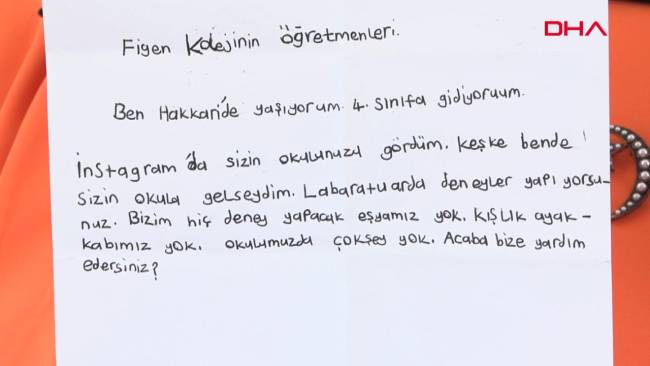 DHA
Fiyen Kolejinin öğretmenleri.
Ben Hakkari'de yaşıyorum. 4. sınıfa gidiyoruum.
İnstagram'da sizin okulunuzu gördüm. keşke bende
sizin okula gelseydim. Labaratuarda deneyler yapıyorsu-
nuz. Bizim hiç deney yapacak eşyamız yok. Kışlık ayak-
kabımız yok. okulumuzda çokşey yok. Acaba bize yardım
edersiniz?